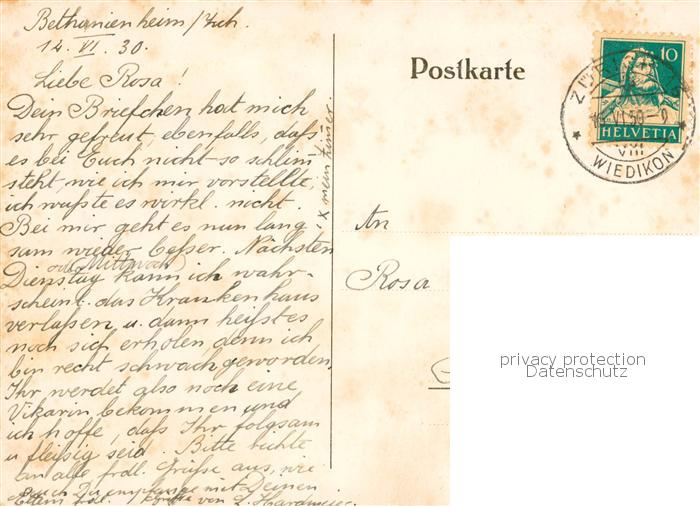 Bethanienheim / Zch.
14. VI. 30.
Liebe Rosa!
Dein Briefchen hat mich
sehr gefreut, ebenfalls, daß
es bei Euch nicht so schlim
steht, wie ich mir vorstellte,
ich wußte es wirkl. nocht.
Bei mir geht es nun lang
sam wieder beßer. Nächsten
od. Mittwoch
Dienstag kann ich wahr-
scheinl. das Krankenhaus
verlaßen u. dann heißt es
noch sich erholen, denn ich
bin recht schwach geworden.
Ihr werdet also noch eine
Vikarin bekommen und
ich hoffe, daß Ihr folgsam
u fleißig seid. Bitte richte
an alle frdl. Grüße aus, wie
auch Du empfange mit Deinen
Eltern frdl. Grüße von L. Hardmeier.
x mein
Postkarte
10
HELVETIA
ZÜRICH
VI.30-9
VIII
WIEDIKON
An
Rosa
privacy protection
Datenschutz